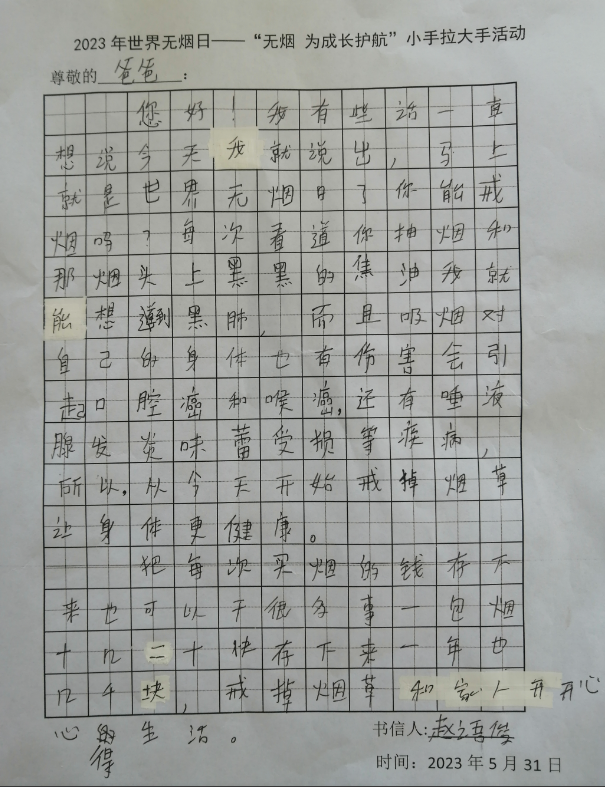 2023年世界无烟日——“无烟 为成长护航”小手拉大手活动
尊敬的爸爸：
您好！我有些话一直
想说今天我就说出，马上
就是世界无烟日了你能戒
烟吗？每次看道你抽烟和
那烟头上黑黑的焦油我就
能想到黑肺，而且吸烟对
自己的身体也有伤害会引
起口腔癌和喉癌，还有唾液
腺发炎味蕾受损等疾病，
所以，从今天开始戒掉烟草
让身体更健康。
把每次买烟的钱存下
来也可以干很多事一包烟
十几二十块存下来一年也
几千块，戒掉烟草和家人开开心
心得生活。
书信人：赵语俊
时间：2023年5月31日